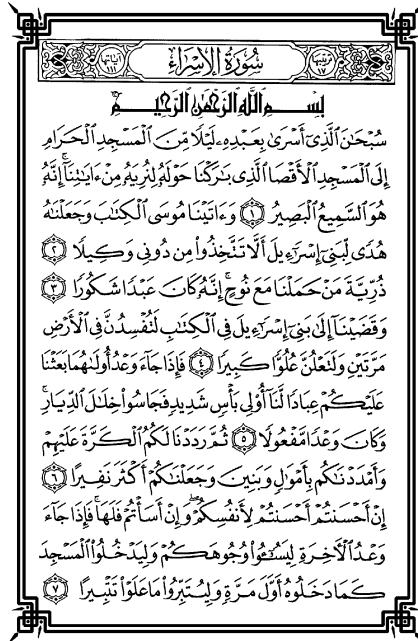 ترتيبها ١٧ سُورَةُ الإِسۡرَاءِ آياتها ١١١
بِسۡمِ ٱللَّهِ ٱلرَّحۡمَٰنِ ٱلرَّحِيمِ
سُبۡحَٰنَ ٱلَّذِيٓ أَسۡرَىٰ بِعَبۡدِهِۦ لَيۡلٗا مِّنَ ٱلۡمَسۡجِدِ ٱلۡحَرَامِ
إِلَى ٱلۡمَسۡجِدِ ٱلۡأَقۡصَا ٱلَّذِي بَٰرَكۡنَا حَوۡلَهُۥ لِنُرِيَهُۥ مِنۡ ءَايَٰتِنَآۚ إِنَّهُۥ
هُوَ ٱلسَّمِيعُ ٱلۡبَصِيرُ ١ وَءَاتَيۡنَا مُوسَى ٱلۡكِتَٰبَ وَجَعَلۡنَٰهُ
هُدٗى لِّبَنِيٓ إِسۡرَٰٓءِيلَ أَلَّا تَتَّخِذُواْ مِن دُونِي وَكِيلٗا ٢
ذُرِّيَّةَ مَنۡ حَمَلۡنَا مَعَ نُوحٍۚ إِنَّهُۥ كَانَ عَبۡدٗا شَكُورٗا ٣
وَقَضَيۡنَآ إِلَىٰ بَنِيٓ إِسۡرَٰٓءِيلَ فِي ٱلۡكِتَٰبِ لَتُفۡسِدُنَّ فِي ٱلۡأَرۡضِ
مَرَّتَيۡنِ وَلَتَعۡلُنَّ عُلُوّٗا كَبِيرٗا ٤ فَإِذَا جَآءَ وَعۡدُ أُولَىٰهُمَا بَعَثۡنَا
عَلَيۡكُمۡ عِبَادٗا لَّنَآ أُوْلِي بَأۡسٖ شَدِيدٖ فَجَاسُواْ خِلَٰلَ ٱلدِّيَارِۚ
وَكَانَ وَعۡدٗا مَّفۡعُولٗا ٥ ثُمَّ رَدَدۡنَا لَكُمُ ٱلۡكَرَّةَ عَلَيۡهِمۡ
وَأَمۡدَدۡنَٰكُم بِأَمۡوَٰلٖ وَبَنِينَ وَجَعَلۡنَٰكُمۡ أَكۡثَرَ نَفِيرًا ٦
إِنۡ أَحۡسَنتُمۡ أَحۡسَنتُمۡ لِأَنفُسِكُمۡۖ وَإِنۡ أَسَأۡتُمۡ فَلَهَاۚ فَإِذَا جَآءَ
وَعۡدُ ٱلۡأٓخِرَةِ لِيَسُـُٔواْ وُجُوهَكُمۡ وَلِيَدۡخُلُواْ ٱلۡمَسۡجِدَ
كَمَا دَخَلُوهُ أَوَّلَ مَرَّةٖ وَلِيُتَبِّرُواْ مَا عَلَوۡاْ تَتۡبِيرًا ٧